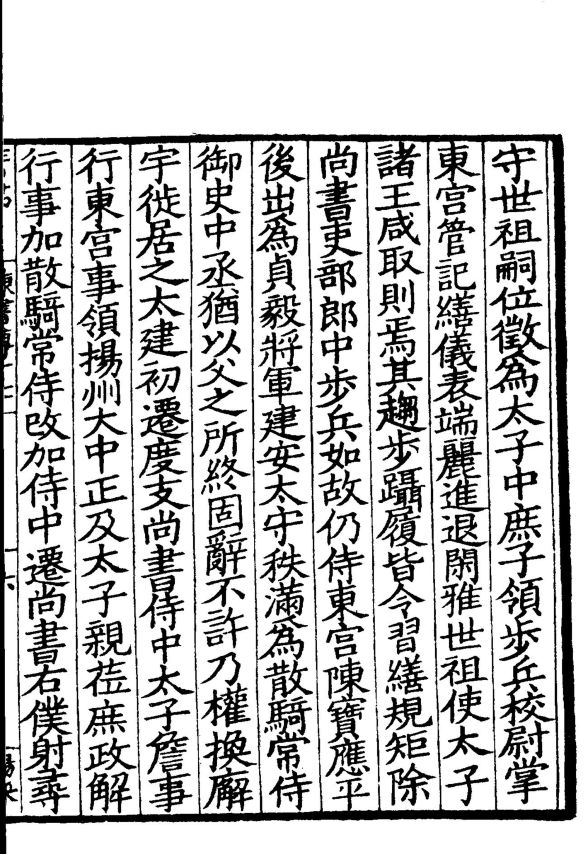 守世祖嗣位徵爲太子中庶子領步兵校尉掌
東宮管記繕儀表端麗進退閑雅世祖使太子
諸王咸取則焉其趨步躡履皆令習繕規矩除
尚書吏部郎中步兵如故仍侍東宮陳寶應平
後出爲貞毅將軍建安太守秩滿爲散騎常侍
御史中丞猶以父之所終固辭不許乃權換廨
宇徙居之太建初遷度支尚書侍中太子詹事
行東宮事領揚州大中正及太子親莅庶政解
行事加散騎常侍改加侍中遷尚書右僕射尋